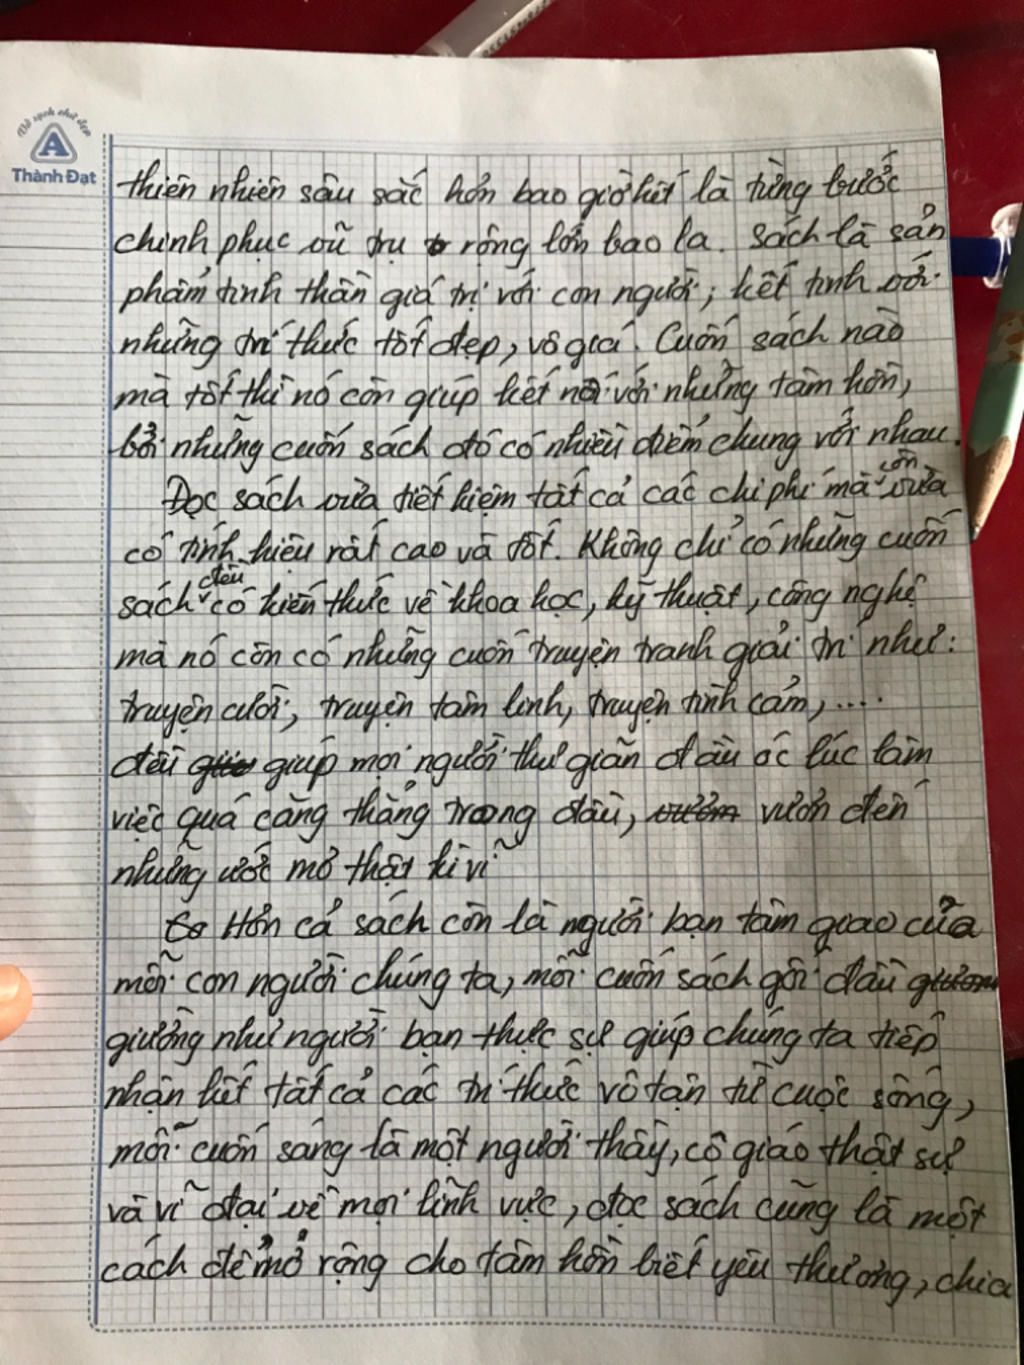 Vở sạch chữ đẹp
A
Thành Đạt
thiên nhiên sâu sắc hơn bao giờ hết là từng bước
chinh phục vũ trụ rộng lớn bao la. Sách là sản
phẩm tinh thần giá trị với con người, kết tinh với
những tri thức tốt đẹp, vô giá. Cuốn sách nào
mà tốt thì nó còn giúp kết nối với những tâm hồn,
bởi những cuốn sách đó có nhiều điểm chung với nhau.
Đọc sách vừa tiết kiệm tất cả các chi phí mà còn vừa
có tính hiệu rất cao và tốt. Không chỉ có những cuốn
sách đều có kiến thức về khoa học, kỹ thuật, công nghệ
mà nó còn có những cuốn truyện tranh giải trí như:
truyện cười, truyện tâm linh, truyện tình cảm,....
đều giúp mọi người thư giãn đầu óc lúc làm
việc quá căng thẳng trong đầu, vươn đến
những ước mơ thật kì vĩ
Hơn cả sách còn là người bạn tâm giao của
mỗi con người chúng ta, mỗi cuốn sách gối đầu
giường như người bạn thực sự giúp chúng ta tiếp
nhận hết tất cả các tri thức vô tận từ cuộc sống,
mỗi cuốn sáng là một người thầy, cô giáo thật sự
và vĩ đại về mọi lĩnh vực, đọc sách cũng là một
cách để mở rộng cho tâm hồn biết yêu thương, chia